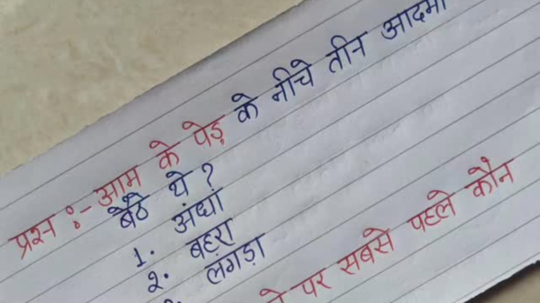 प्रश्न :- आम के पेड़ के नीचे तीन आदमी
बैठे थे ?
1. अंधा
2. बहरा
लंगड़ा
पर सबसे पहले कौन